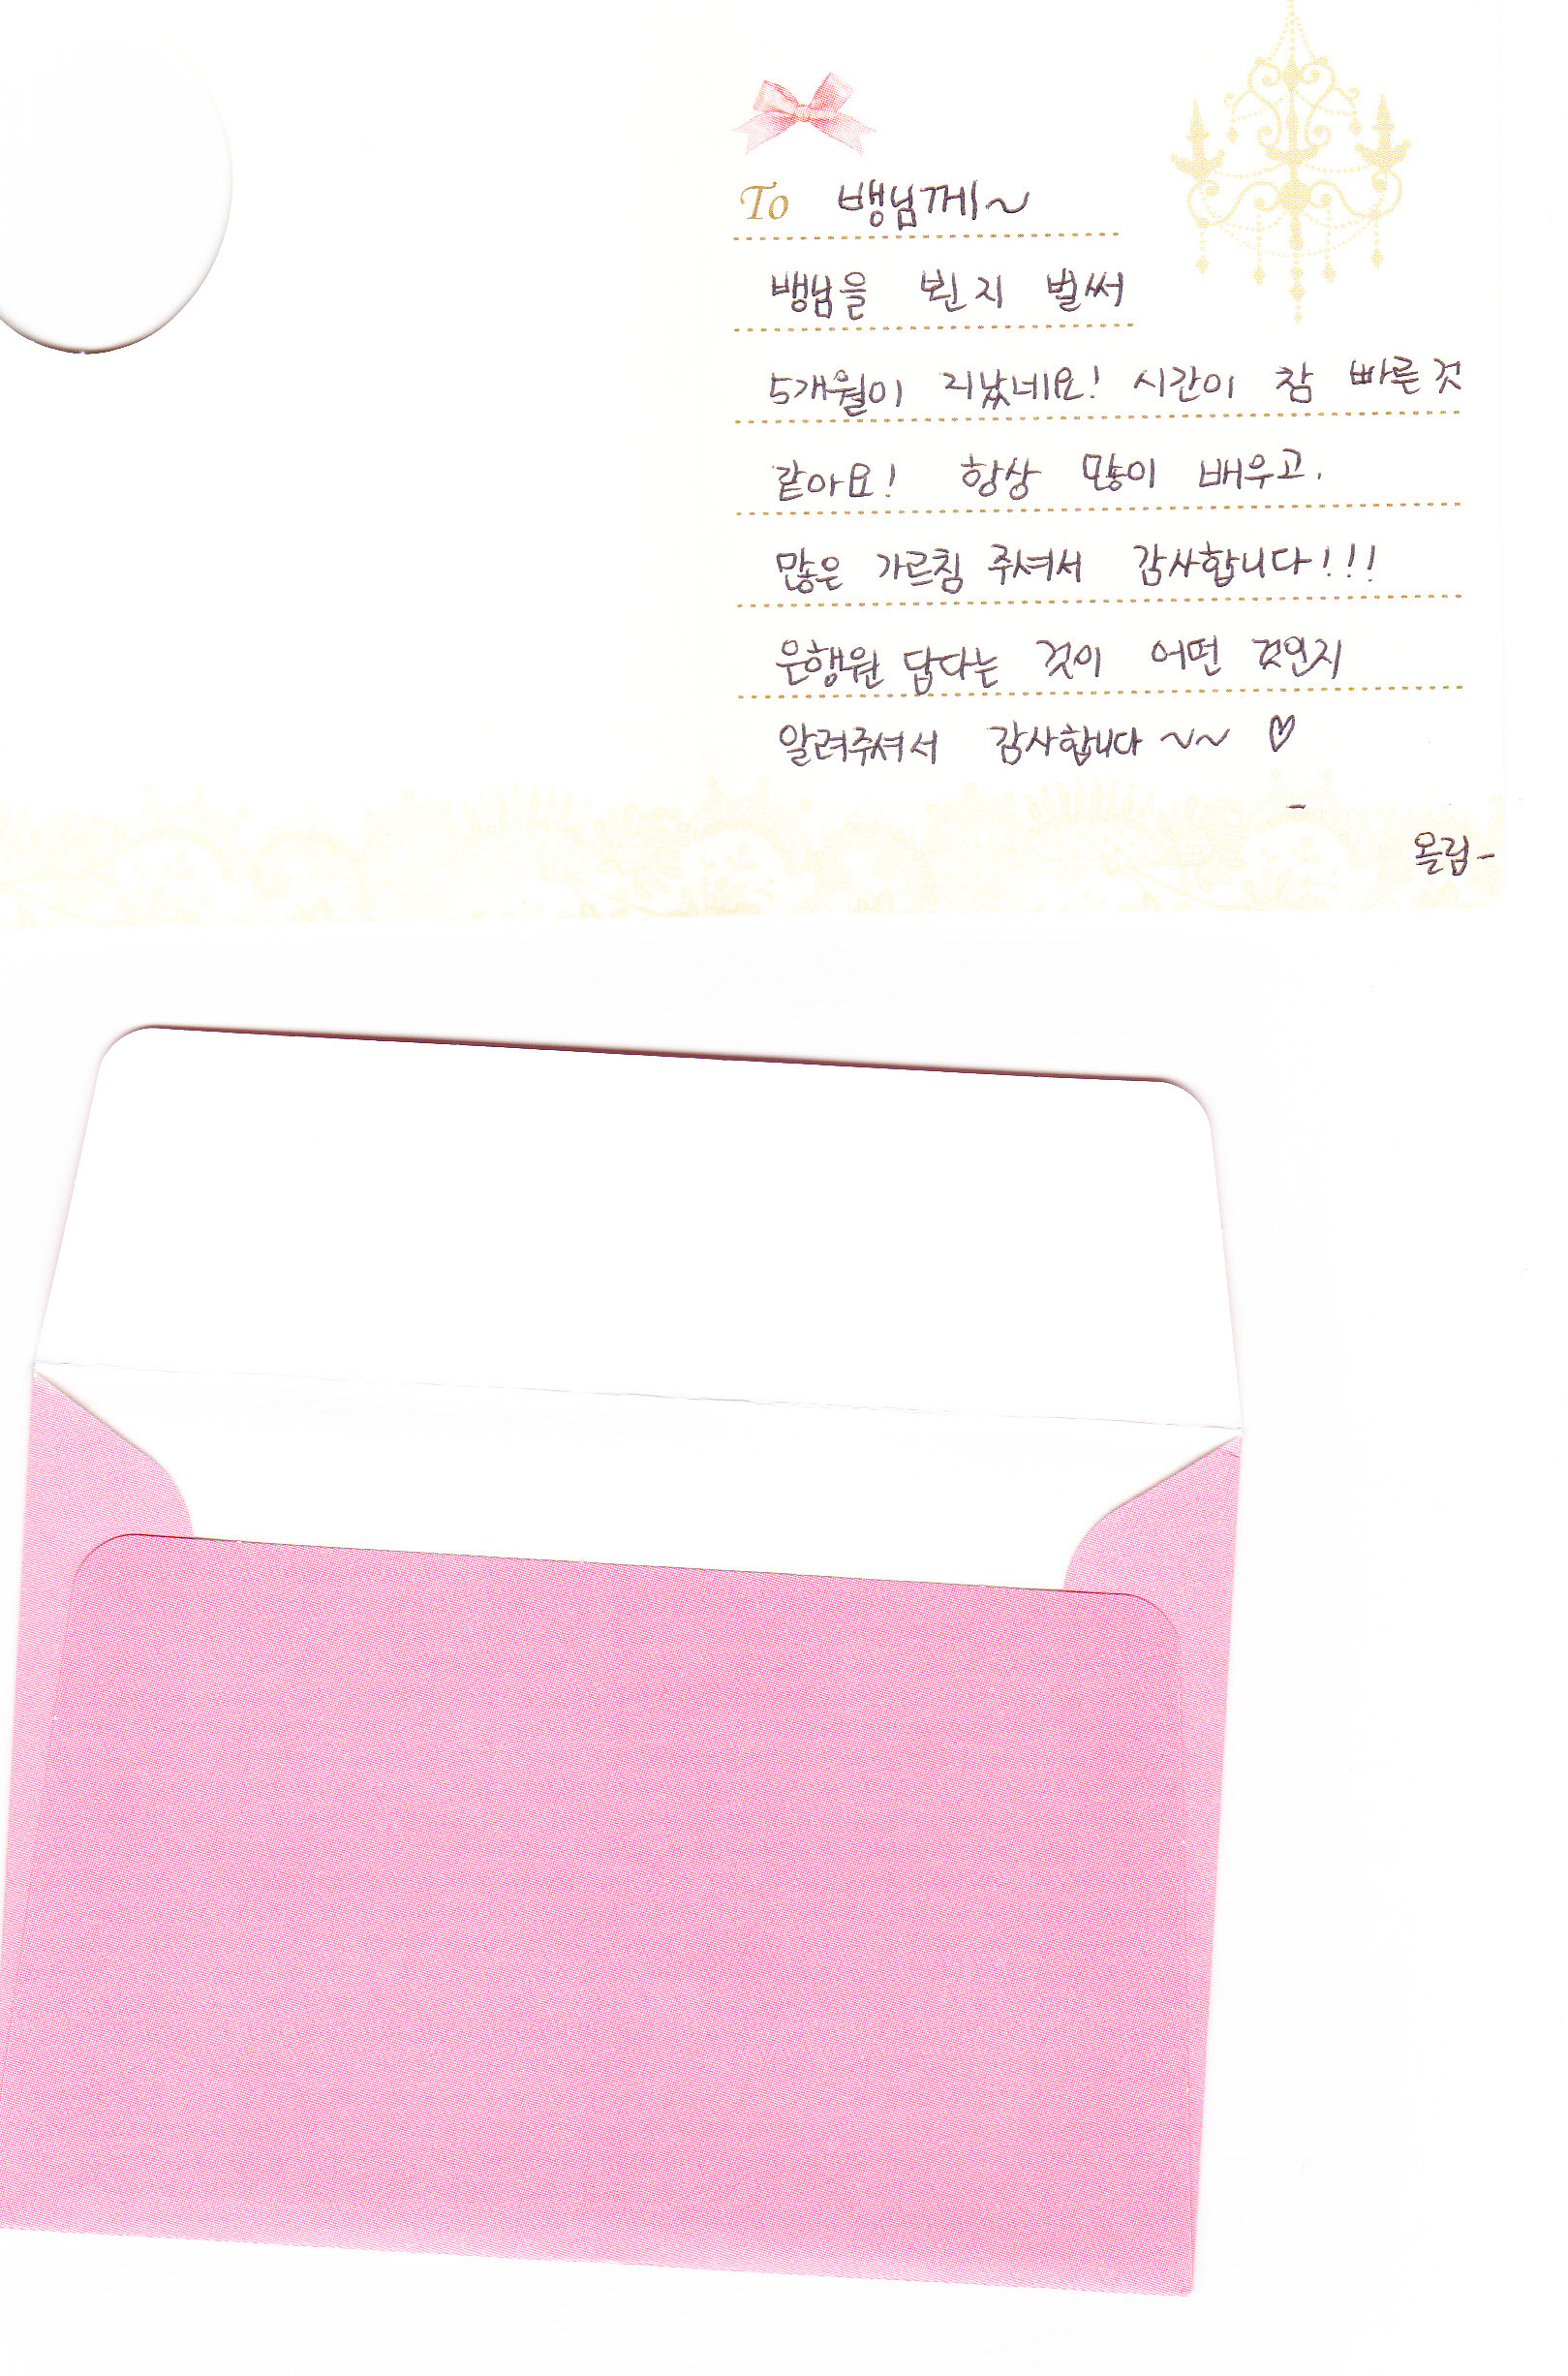 To 뱅님께~
뱅님을 뵌지 벌써
5개월이 지났네요! 시간이 참 빠른것
같아요! 항상 많이 배우고,
많은 가르침 주셔서 감사합니다!!!
은행원 답다는 것이 어떤 것인지
알려주셔서 감사합니다 ~~ ♡
-
올림-